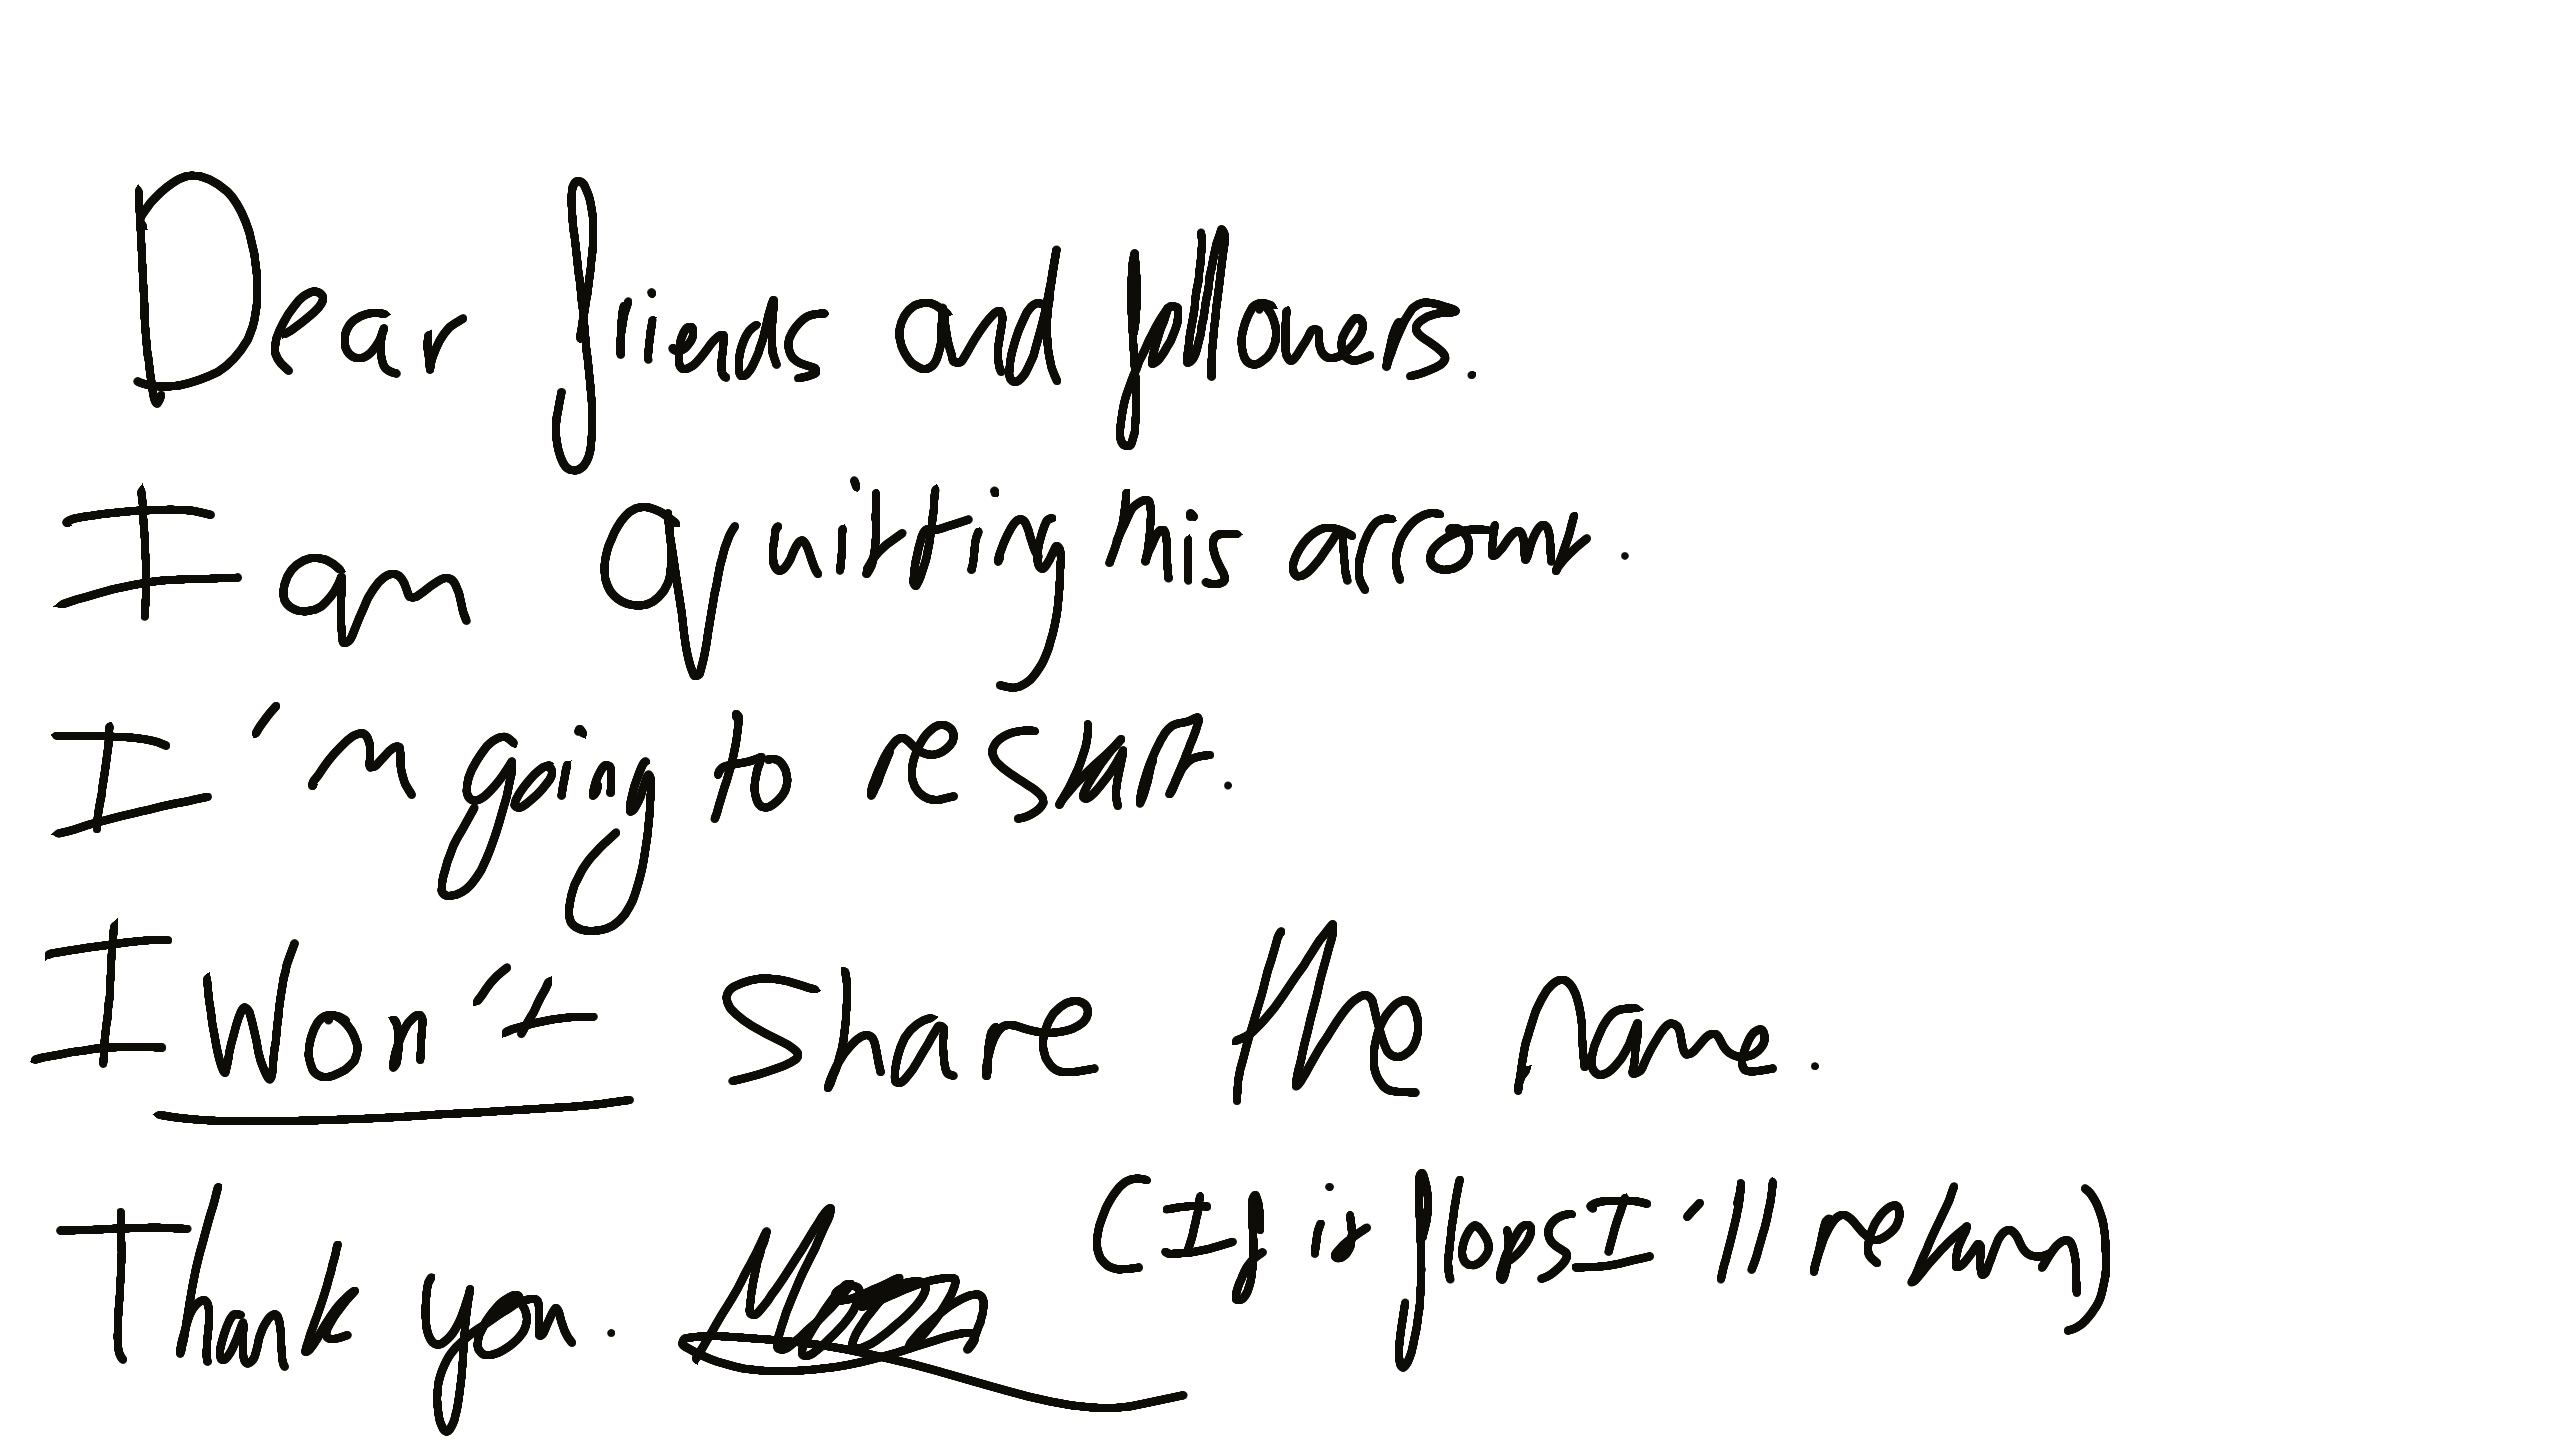 Dear friends and followers.
I am quitting this account.
I'm going to restart.
I Won't share the name.
Thank you. Moon (If it flops I'll return)